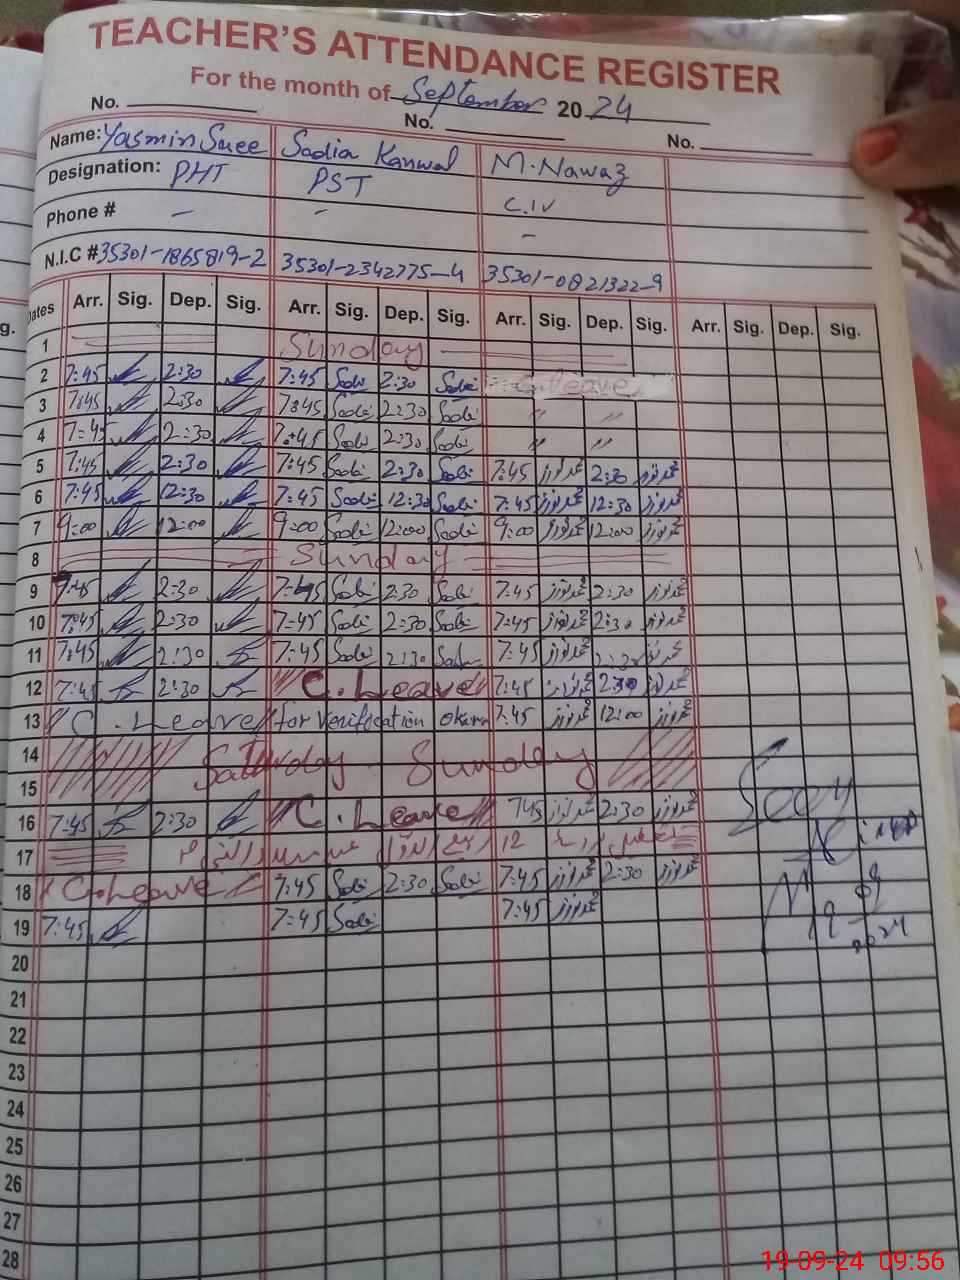 TEACHER'S ATTENDANCE REGISTER
For the month of September 2024
No. No. No.
Name: Yasmin Sadia Kanwal M. Nawaz
Designation: PHT PST C.IV
Phone # - - -
N.I.C # 35301-1865819-2 35301-2342775-4 35301-0821322-9
Dates Arr. Sig. Dep. Sig. Arr. Sig. Dep. Sig. Arr. Sig. Dep. Sig. Arr. Sig. Dep. Sig.
g.
1 Sunday
2 7:45 2:30 7:45 Sadi 2:30 Sadi C.Leave
3 7:45 2:30 7:45 Sadi 2:30 Sadi " "
4 7:45 2:30 7:45 Sadi 2:30 Sadi " "
5 7:45 2:30 7:45 Sadi 2:30 Sadi 7:45 محمد نواز 2:30 محمد نواز
6 7:45 12:30 7:45 Sadi 12:30 Sadi 7:45 محمد نواز 12:30 محمد نواز
7 9:00 12:00 9:00 Sadi 12:00 Sadi 9:00 محمد نواز 12:00 محمد نواز
8 Sunday
9 7:45 2:30 7:45 Sadi 2:30 Sadi 7:45 محمد نواز 2:30 محمد نواز
10 7:45 2:30 7:45 Sadi 2:30 Sadi 7:45 محمد نواز 2:30 محمد نواز
11 7:45 2:30 7:45 Sadi 2:30 Sadi 7:45 محمد نواز 2:30 محمد نواز
12 7:45 2:30 C.Leave 7:45 محمد نواز 2:30 محمد نواز
13 C.Leave for verification okara 7:45 محمد نواز 12:00 محمد نواز
14 Saturday Sunday
15
16 7:45 2:30 C.Leave 745 محمد نواز 2:30 محمد نواز
17 12 ربیع الاول عید میلاد النبی
18 C.Leave 7:45 Sadi 2:30 Sadi 7:45 محمد نواز 2:30 محمد نواز
19 7:45 7:45 Sadi 7:45 محمد نواز
19
09
2024
20
21
22
23
24
25
26
27
28
19-09-24 09:56